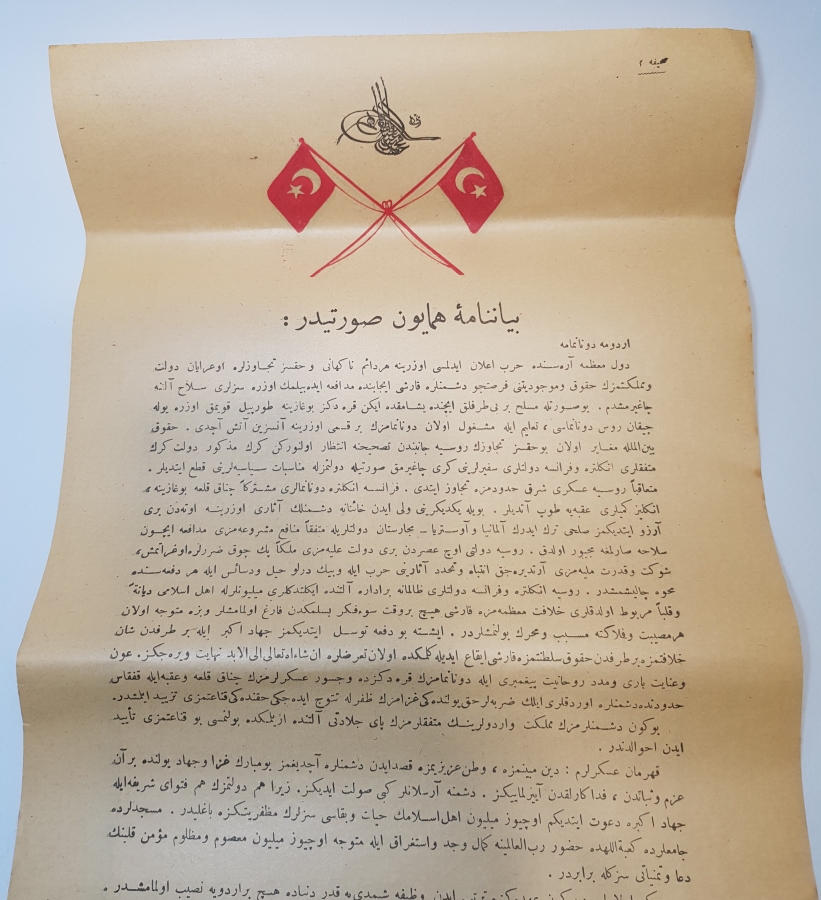 صحيفه ٢
بياننامۀ همايون صورتيدر :
اردومه دونانمامه
دول معظمه آره‌سنده حرب اعلان ايدلمسى اوزرينه هردائم ناكهانى و حقسز تجاوزلره اوغرايان دولت
ومملكتمزك حقوق وموجوديتنى فرصتجو دشمنلره قارشى ايجابنده مدافعه ايده‌بيلمك اوزره سزلرى سلاح آلتنه
چاغيرمشدم . بوصورتله مسلح بر بى‌طرفلق ايچنده يشامقده ايكن قره دكز بوغازينه طورپيل قويمق اوزره يوله
چيقان روس دونانماسى ، تعليم ايله مشغول اولان دونانمامزك بر قسمى اوزرينه آنسزين آتش آچدى . حقوق
بين‌الملله مغاير اولان بوحقسز تجاوزك روسيه جانبندن تصحيحنه انتظار اولنوركن كرك مذكور دولت كرك
متفقلرى انكلتره وفرانسه دولتلرى سفيرلرينى كرى چاغيرمق صورتيله دولتمزله مناسبات سياسيه‌لرينى قطع ايتديلر .
متعاقباً روسيه عسكرى شرق حدودمزه تجاوز ايتدى . فرانسه انكلتره دونانمالرى مشتركاً چناق قلعه بوغازينه ،
انكليز كميلرى عقبه‌يه طوپ آتديلر . بويله يكديكرينى ولى ايدن خائنانه دشمنلك آثارى اوزرينه اوته‌دن برى
آرزو ايتديكمز صلحى ترك ايدرك آلمانيا و آوستريا ــ مجارستان دولتلريله متفقاً منافع مشروعه‌مزى مدافعه ايچون
سلاحه صارلمغه مجبور اولدق . روسيه دولتى اوچ عصردن برى دولت عليه‌مزى ملكاً پك چوق ضررلره اوغراتمش ،
شوكت وقدرت مليه‌مزى آرتديره‌جق انتباه وتجدد آثارينى حرب ايله وبيك درلو حيل ودسائس ايله هر دفعه‌سنده
محوه چاليشمشدر . روسيه انكلتره وفرانسه دولتلرى ظالمانه براداره آلتنده ايكلتدكلرى ميليونلرله اهل اسلامى ديانةً
وقلباً مربوط اولدقلرى خلافت معظمه‌مزه قارشى هيچ بروقت سوءفكر بسلمكدن فارغ اولمامشلر وبزه متوجه اولان
هرمصيبت وفلاكته مسبب ومحرك بولنمشلردر . ايشته بو دفعه توسل ايتديكمز جهاد اكبر ايله بر طرفدن شان
خلافتمزه برطرفدن حقوق سلطنتمزه قارشى ايقاع ايديله كلمكده اولان تعرضلره ان‌شاءاه‌تعالى‌الى‌الابد نهايت ويره‌جكز . عون
وعنايت بارى ومدد روحانيت پيغمبرى ايله دونانمامزك قره دكزده وجسور عسكرلرمزك چناق قلعه وعقبه‌ايله قفقاس
حدودنده‌دشمنلره اوردقلرى ايلك ضربه‌لر حق يولنده‌كى غزامزك ظفرله تتوج ايده‌جكى حقنده‌كى قناعتمزى تزييد ايلمشدر.
بوكون دشمنلرمزك مملكت واردولرينك متفقلرمزك پاى جلادتى آلتنده ازيلمكده بولنمسى بو قناعتمزى تأييد
ايدن احوالدندر .
قهرمان عسكرلرم : دين مبينمزه ، وطن‌عزيزيمزه قصدايدن دشمنلره آچديغمز بومبارك غزا وجهاد يولنده برآن
عزم وثباتدن ، فداكارلقدن آيريلمايكز . دشمنه آرسلانلر كبى صولت ايديكز. زيرا هم دولتمزك هم فتواى شريفه‌ايله
جهاد اكبره دعوت ايتديكم اوچيوز ميليون اهل‌اسلامك حيات وبقاسى سزلرك مظفريتكزه باغليدر . مسجدلرده
جامعلرده كعبةاللهده حضور رب‌العالمينه كمال وجد واستغراق ايله متوجه اوچيوز ميليون معصوم ومظلوم مؤمن قلبنك
دعا وتمنياتى سزكله برابردر .
ايدن وظيفه شمدى‌يه قدر دنياده هيچ براردويه نصيب اولمامشدر .